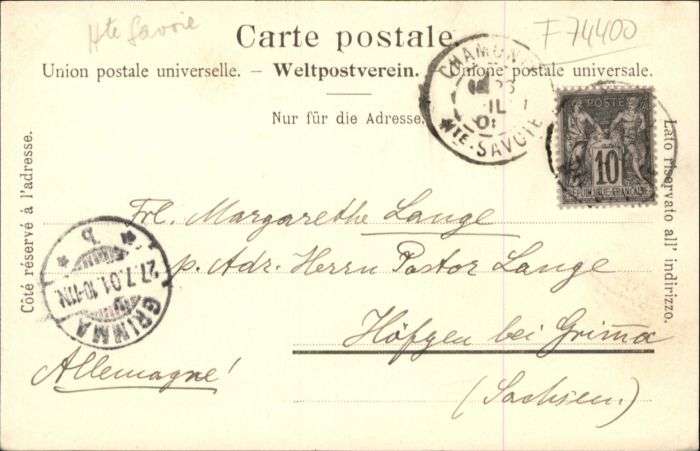 Hte Savoie
F 74400
Carte postale.
Union postale universelle. – Weltpostverein. – Unione postale universale.
Nur für die Adresse.
Côté réservé à l'adresse.
Lato riservato all' indirizzo.
CHAMONIX
IL
01
HTE-SAVOIE
POSTE
10
GRIMMA
27.7.01.10-11V.
b
Frl. Margarethe Lange
p. Adr. Herrn Pastor Lange
Höfgen bei Grima
(Sachsen.)
Allemagne!